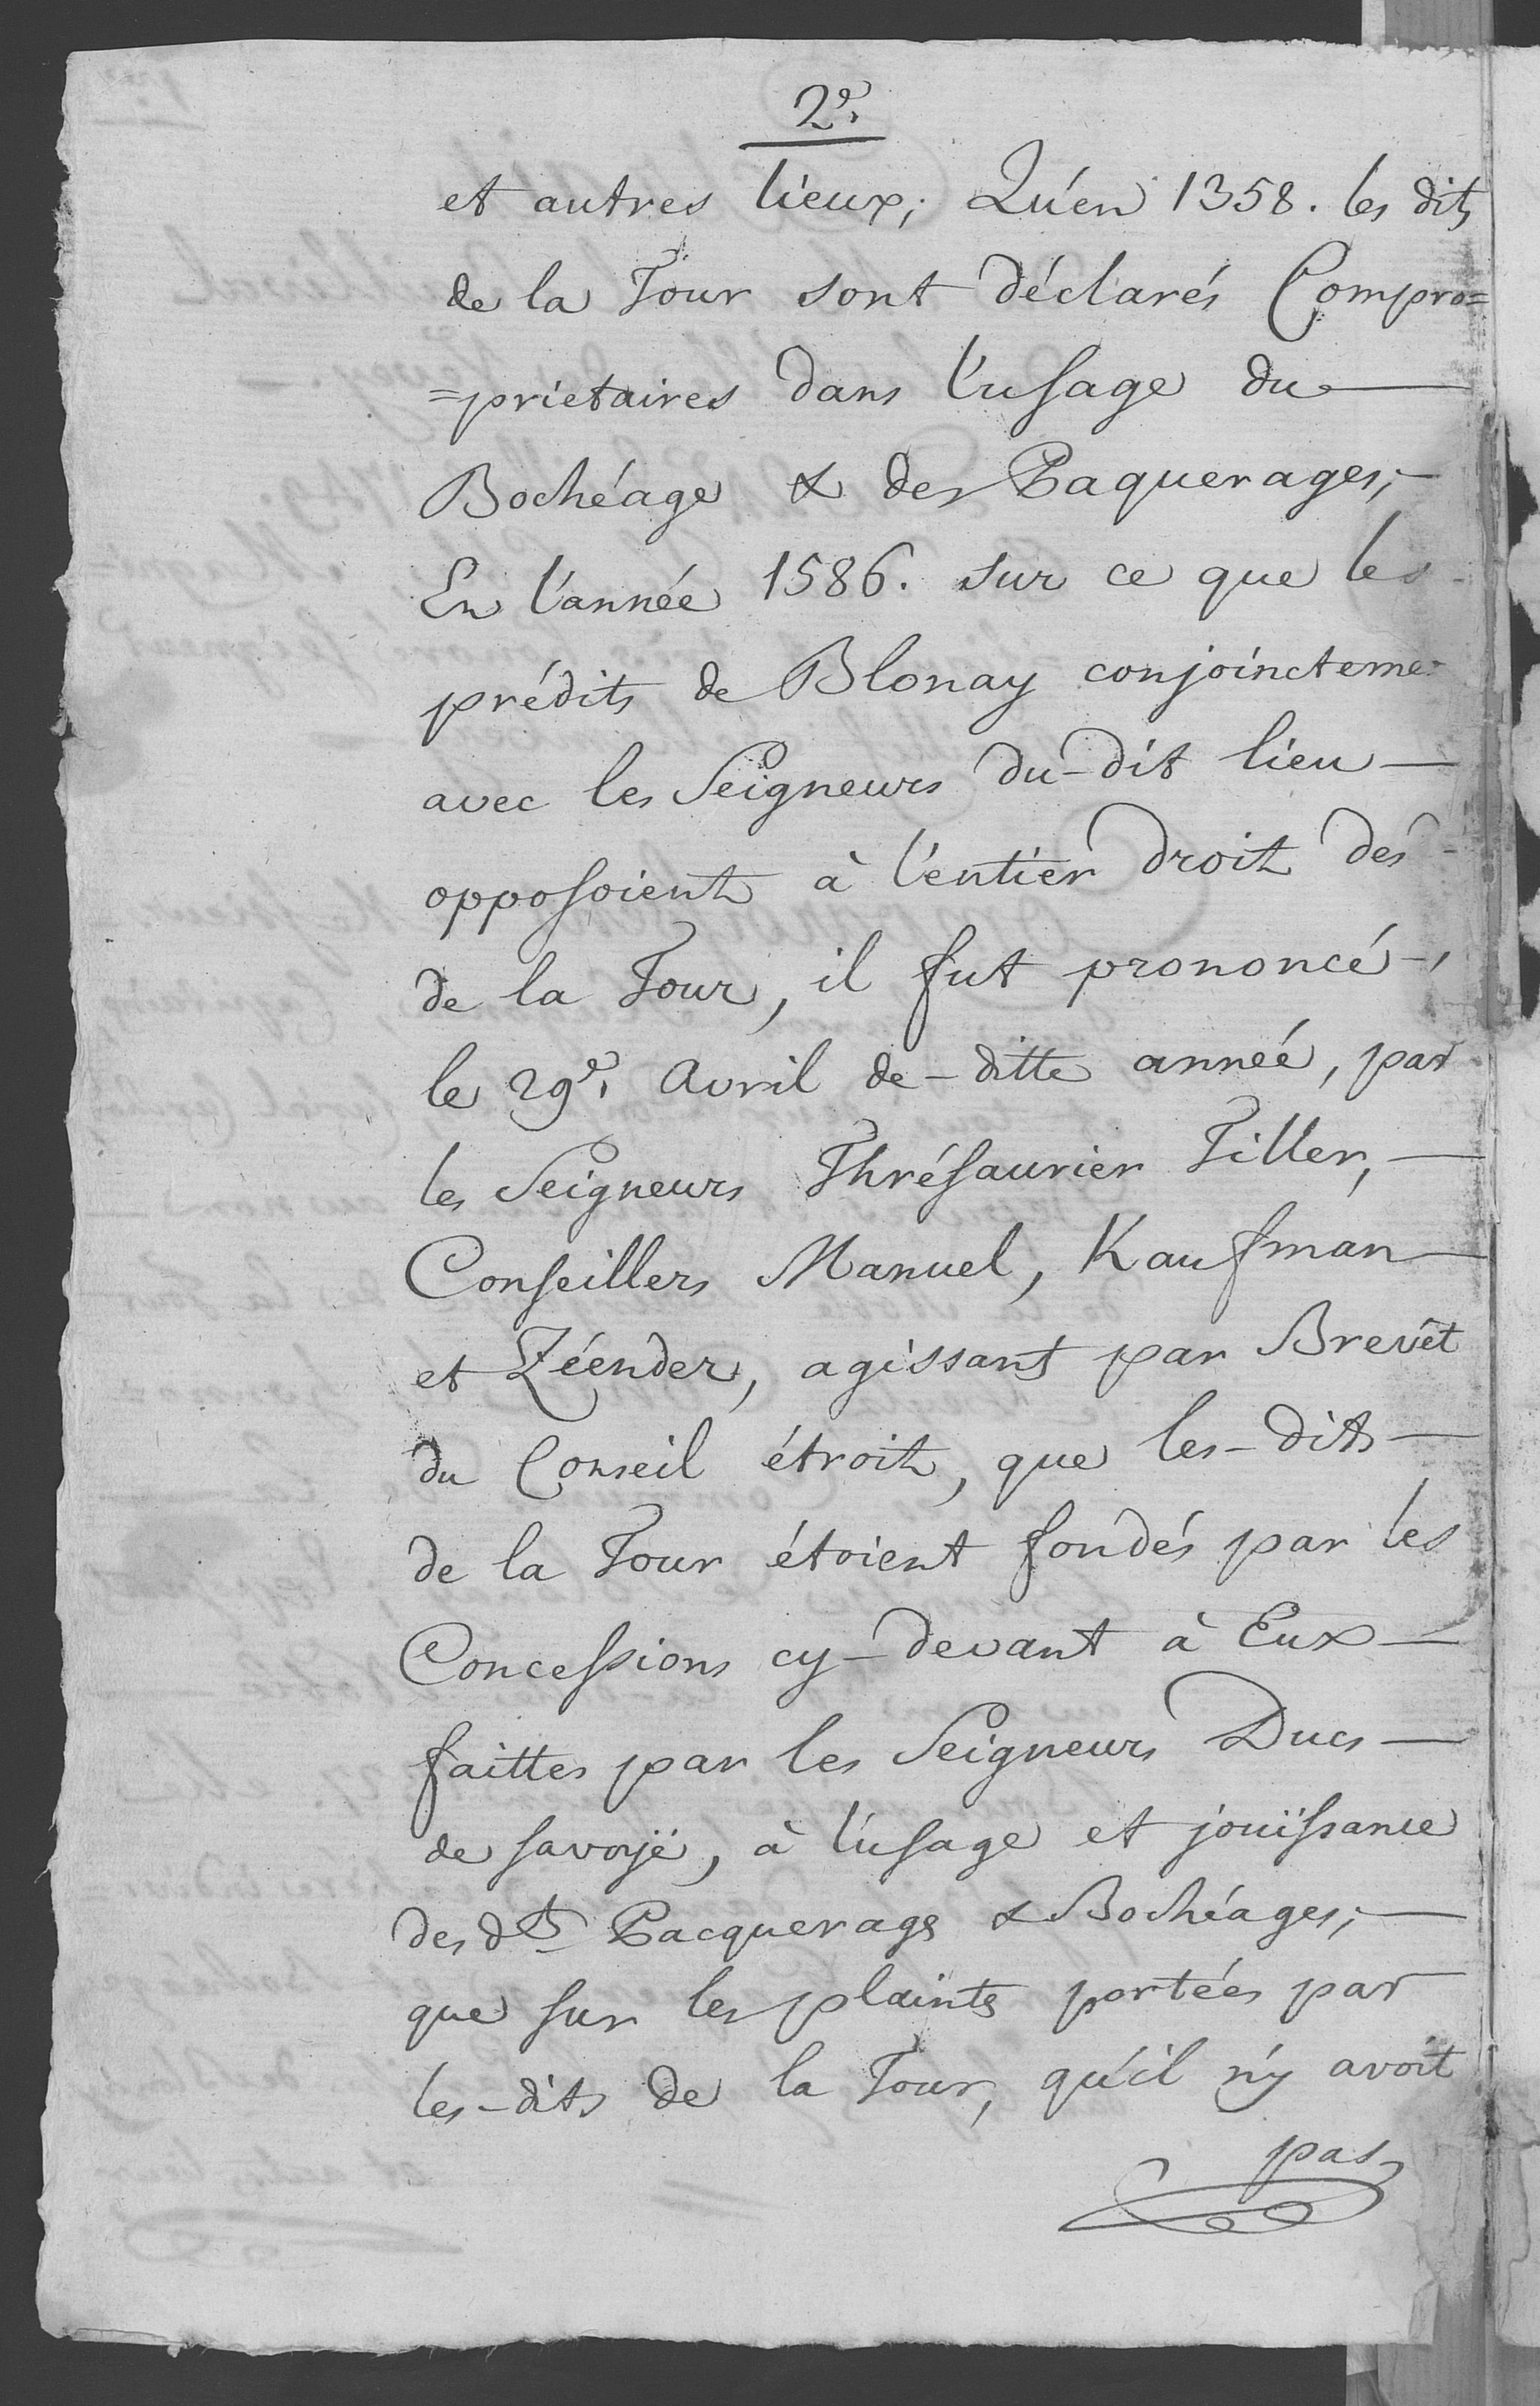 2e.
et autres lieux; Qu'en 1358. les dits
de la Tour sont déclarés Compro=
=priétaires dans l'usage du —
Bochéage & des Paquerages; —
En l'année 1586. sur ce que les
prédits de Blonay conjoincteme
avec les Seigneurs du-dit lieu —
opposoient à l'entier droit des
de la Tour, il fut prononcé,
le 29e. Avril de-ditte année, par
les Seigneurs Thrésaurier Tiller, —
Conseillers Manuel, Kaufman —
et Zéender, agissant par Brevet
du Conseil étroit, que les-dits —
de la Tour étoient fondés par les
Concessions cy-devant à Eux —
faittes par les Seigneurs Ducs —
de savoye, à l'usage et jouïssance
des dts Pacquerages & Bochéages; —
que sur les plaintes portées par
les-dits de la Tour, qu'il n'y avoit
pas